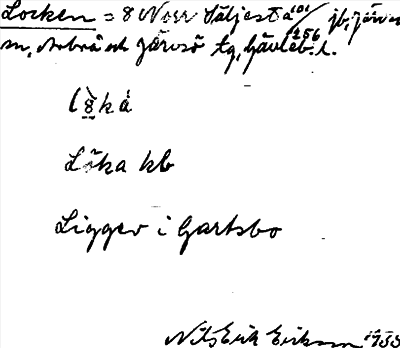 Locken = 8 Norr Säljesta 101/256 jb, Järvsö
m, Arbrå och Järvsö tg, Gävleb. l.
Löka kb
Ligger i Gartsbo
Nils Erik Erikson 1955